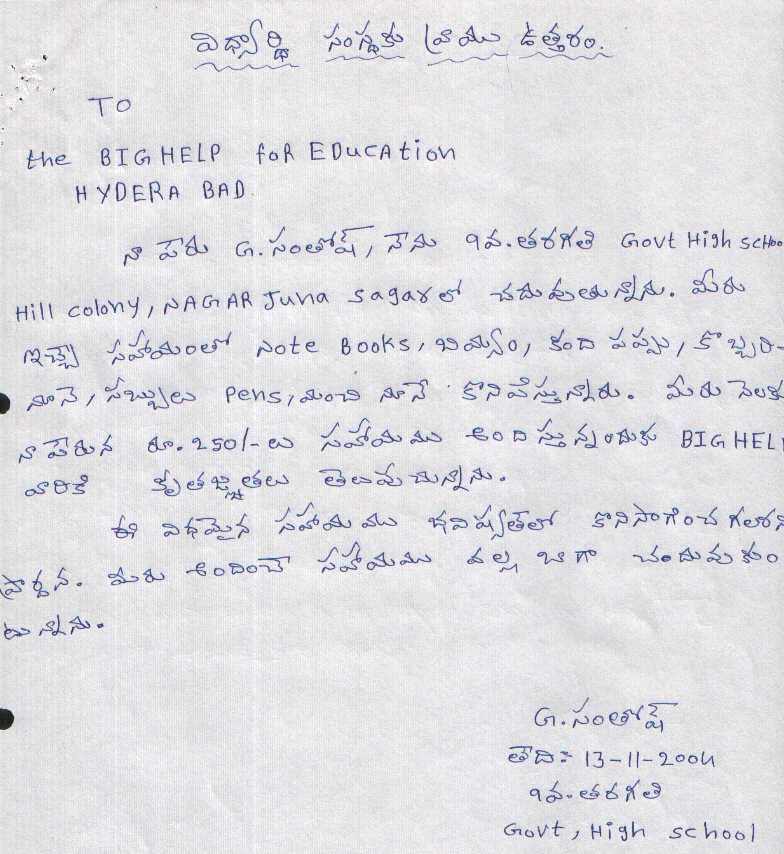 విద్యార్థి సంస్థకు వ్రాయు ఉత్తరం.
TO
the BIG HELP foR EDucAtion
HYDERA BAD.
నా పేరు G. సంతోష్, నేను 9వ. తరగతి Govt High scHoo
Hill colony, NAGAR Juna sagar లో చదువుతున్నాను. మీరు
ఇచ్చే సహాయంతో Note Books, బియ్యం, కంది పప్పు, కొబ్బరి-
నూనె, సబ్బులు Pens, మంచి నూనే కొనివేస్తున్నారు. మీరు నెలకు
నా పేరున రూ. 250/- లు సహాయము అందిస్తున్నందుకు BIG HELP
వారికి కృతజ్ఞతలు తెలుపుచున్నాను.
ఈ విధమైన సహాయము భవిష్యత్‌లో కొనిసాగించ గలరని
ప్రార్థన. మీరు అందించే సహాయము వల్ల బాగా చందువుకుం
టున్నాను.
G. సంతోష్
తేది:- 13-11-2004
9వ. తరగతి
Govt, High school